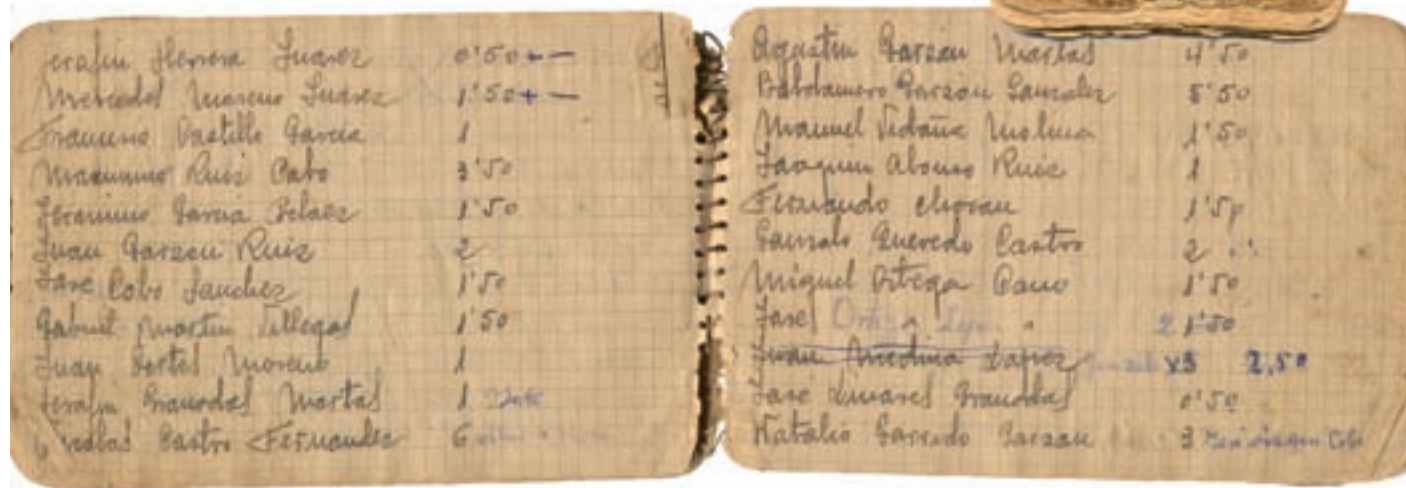 Serafin Herrera Juarez 0'50 + —
Mercedes Moreno Suarez 1'50 + —
Francisco Castillo Garcia 1
Maximino Ruiz Cobo 3'50
Jeronimo Garcia Pelaez 1'50
Juan Garzon Ruiz 2
Jose Cobo Sanchez 1'50
Gabriel Martin Villegas 1'50
Juan Cortes Moreno 1
Serafin Granodas Martas 1
Nicolas Castro Fernandez 6
Agustin Garzon Martas 4'50
Garzon Gonzalez 5'50
Manuel Molina 1'50
Joaquin Alonso Ruiz 1
Fernando 1'50
Gonzalo Quevedo Castro 2
Miguel Ortega Cano 1'50
Jose " " 2 1'50
Juan Medina Lopez x3 2,50
Jose Linares Granodas 0'50
Natalio Garrido Garzon 3